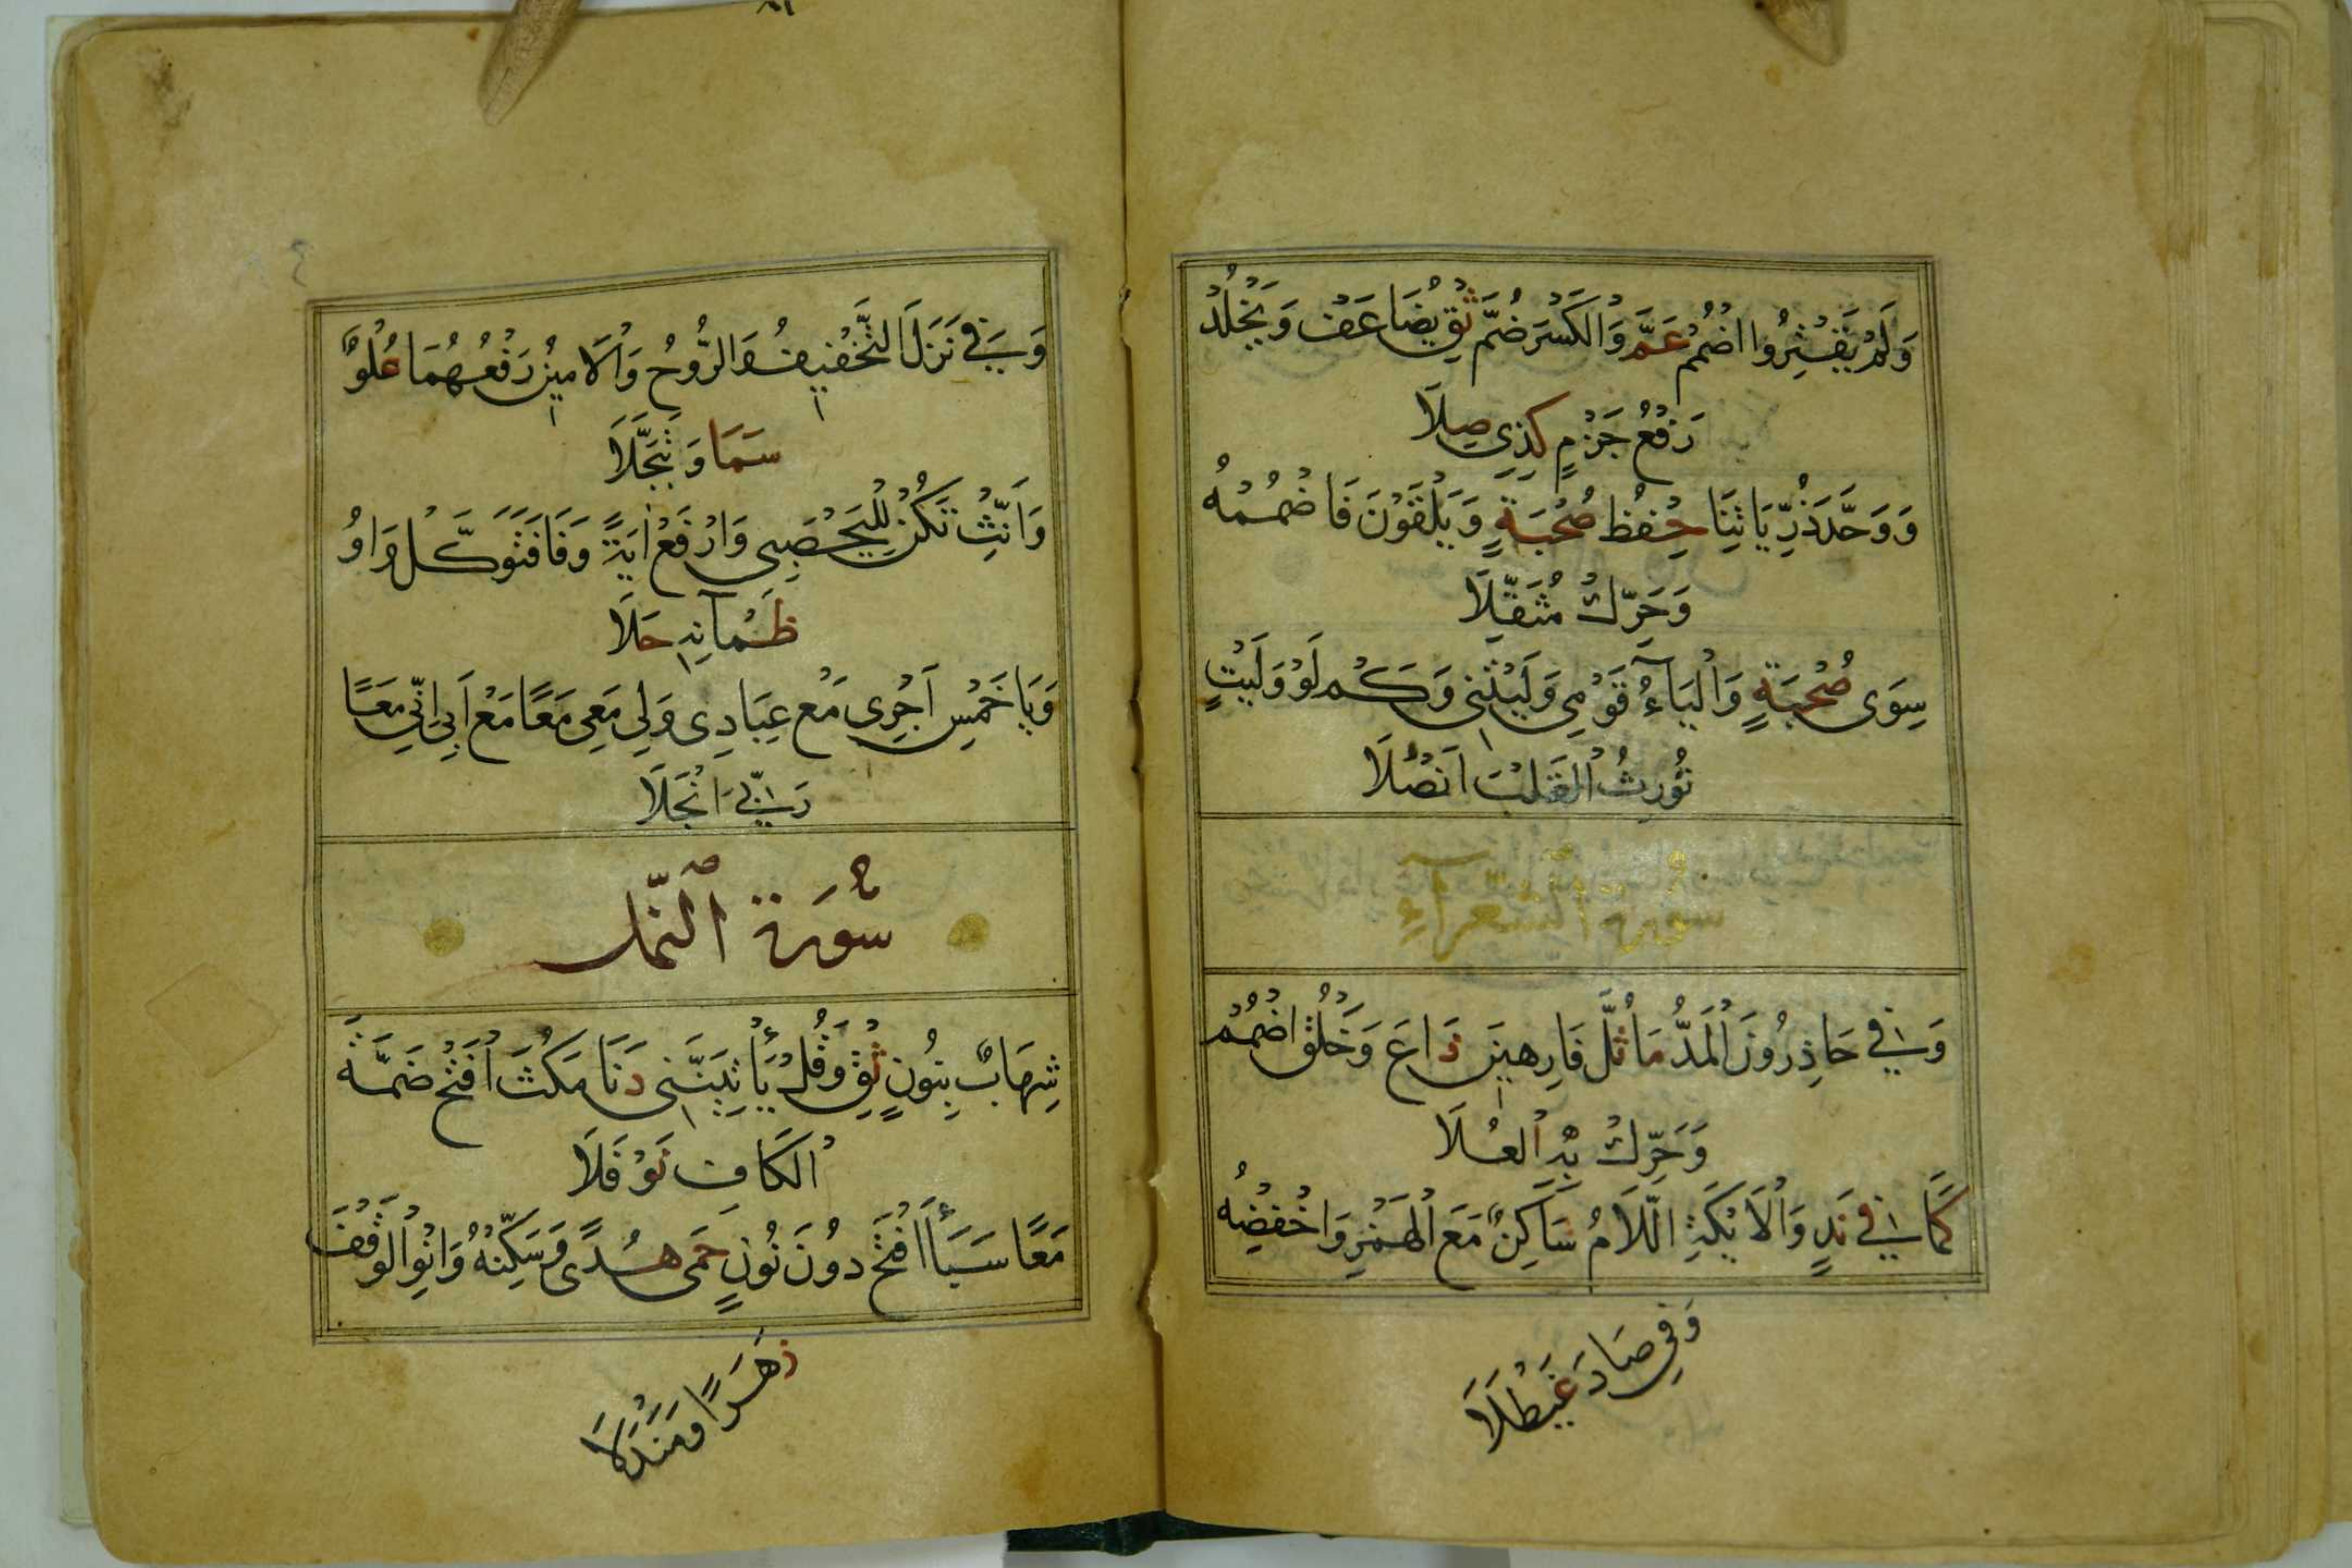 وَلَمْ يَقْتِرُوا اضْمُمْ عَمَّ وَالْكَسْرَ ضُمَّ ثِقْ يُضَاعَفْ وَيَخْلُدْ
رَفْعُ جَزْمٍ كَذِي صِلَا
وَوَحَّدَ ذُرِّيَاتِنَا حِفْظُ صُحْبَةٍ وَيَلْقَوْنَ فَاضْمُمْهُ
وَحَرِّكْ مُثَقِّلَا
سِوَى صُحْبَةٍ وَالْيَاءُ قَوْمِي وَلَيْتَنِي وَكَمْ لَوْ وَلَيْتٍ
تُورِثُ الْقَلْبَ أَنْصُلَا
سورة الشعراء
وَفِي حَاذِرُونَ الْمَدُّ مَا ثُلَّ فَارِهِينَ ذَاعَ وَخَلْقُ اضْمُمْ
وَحَرِّكْ بِهِ الْعُلَا
كَمَا فِي نَدٍ وَالْأَيْكَةِ اللَّامُ سَاكِنٌ مَعَ الْهَمْزِ وَاخْفِضْهُ
وَفِي صَادَ غَيْطَلَا
وَفِي نَزَلَ التَّخْفِيفُ وَالرُّوحُ وَالْأَمِينُ رَفْعُهُمَا عُلْوٌ
سَمَا وَتَبَجَّلَا
وَأَنِّثْ تَكُنْ لِلْيَحْصَبِي وَارْفَعْ آيَةً وَفَا فَتَوَكَّلْ وَاوُ
ظَمْآنِهِ حَلَا
وَيَا خَمْسِ أَجْرِي مَعْ عِبَادِي وَلِي مَعِي مَعًا مَعْ أَبِي إِنِّي مَعًا
رَبِّيَ انْجَلَا
سُورَة النَّمل
شِهَابٌ بِنُونٍ ثِقْ وَقُلْ يَأْتِيَنَّنِي دَنَا مَكُثَ افْتَحْ ضَمَّةَ
الْكَافِ نَوْفَلَا
مَعًا سَبَأَ افْتَحْ دُونَ نُونٍ حِمَى هُدًى وَسَكِّنْهُ وَانْوِ الْوَقْفَ
زَهْرًا وَمَنْدَلَا